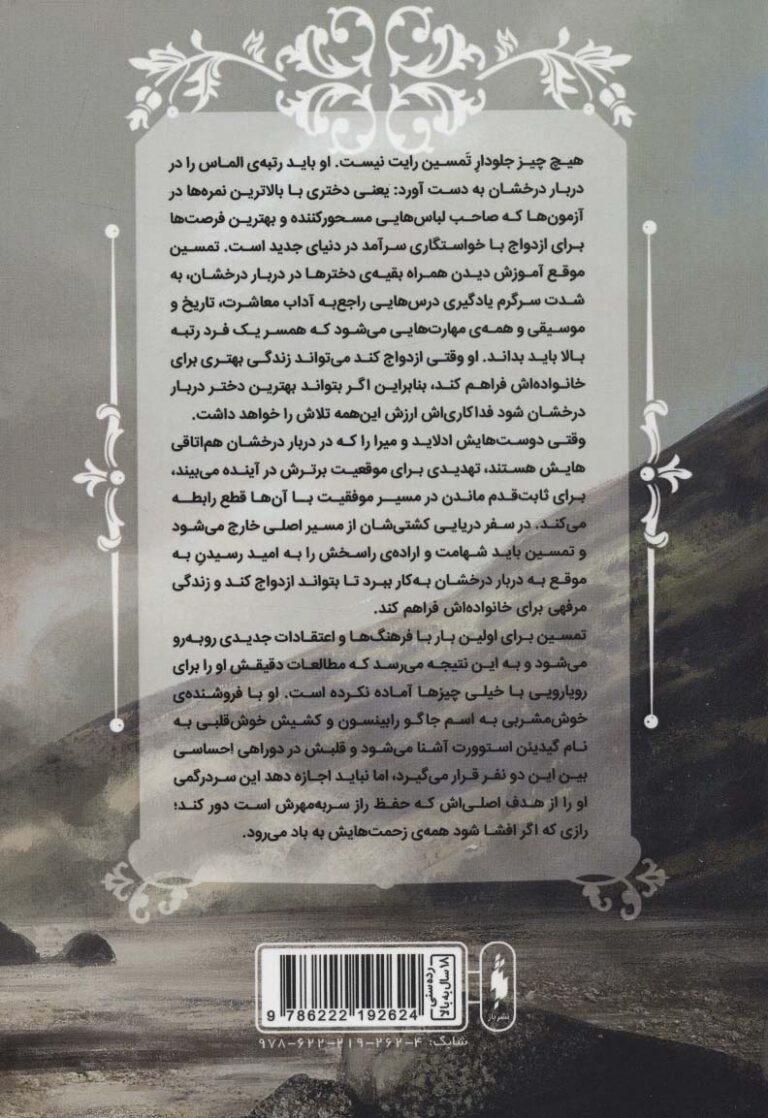 هیچ چیز جلودارِ تَمسین رایت نیست. او باید رتبه‌ی الماس را در
دربار درخشان به دست آورد: یعنی دختری با بالاترین نمره‌ها در
آزمون‌ها که صاحب لباس‌هایی مسحورکننده و بهترین فرصت‌ها
برای ازدواج با خواستگاری سرآمد در دنیای جدید است. تمسین
موقع آموزش دیدن همراه بقیه‌ی دخترها در دربار درخشان، به
شدت سرگرم یادگیری درس‌هایی راجع‌به آداب معاشرت، تاریخ و
موسیقی و همه‌ی مهارت‌هایی می‌شود که همسر یک فرد رتبه
بالا باید بداند. او وقتی ازدواج کند می‌تواند زندگی بهتری برای
خانواده‌اش فراهم کند، بنابراین اگر بتواند بهترین دختر دربار
درخشان شود فداکاری‌اش ارزش این‌همه تلاش را خواهد داشت.
وقتی دوست‌هایش ادلاید و میرا را که در دربار درخشان هم‌اتاقی
هایش هستند، تهدیدی برای موقعیت برترش در آینده می‌بیند،
برای ثابت‌قدم ماندن در مسیر موفقیت با آن‌ها قطع رابطه
می‌کند. در سفر دریایی کشتی‌شان از مسیر اصلی خارج می‌شود
و تمسین باید شهامت و اراده‌ی راسخش را به امید رسیدنِ به
موقع به دربار درخشان به‌کار ببرد تا بتواند ازدواج کند و زندگی
مرفهی برای خانواده‌اش فراهم کند.
تمسین برای اولین بار با فرهنگ‌ها و اعتقادات جدیدی روبه‌رو
می‌شود و به این نتیجه می‌رسد که مطالعات دقیقش او را برای
رویارویی با خیلی چیزها آماده نکرده است. او با فروشنده‌ی
خوش‌مشربی به اسم جاگو رابینسون و کشیش خوش‌قلبی به
نام گیدیئن استوورت آشنا می‌شود و قلبش در دوراهی احساسی
بین این دو نفر قرار می‌گیرد، اما نباید اجازه دهد این سردرگمی
او را از هدف اصلی‌اش که حفظ راز سربه‌مهرش است دور کند؛
رازی که اگر افشا شود همه‌ی زحمت‌هایش به باد می‌رود.
رده‌سنی
۱۸ سال به بالا
نشر باژ
9 786222 192624
شابک: ۹۷۸-۶۲۲-۲۱۹-۲۶۲-۴